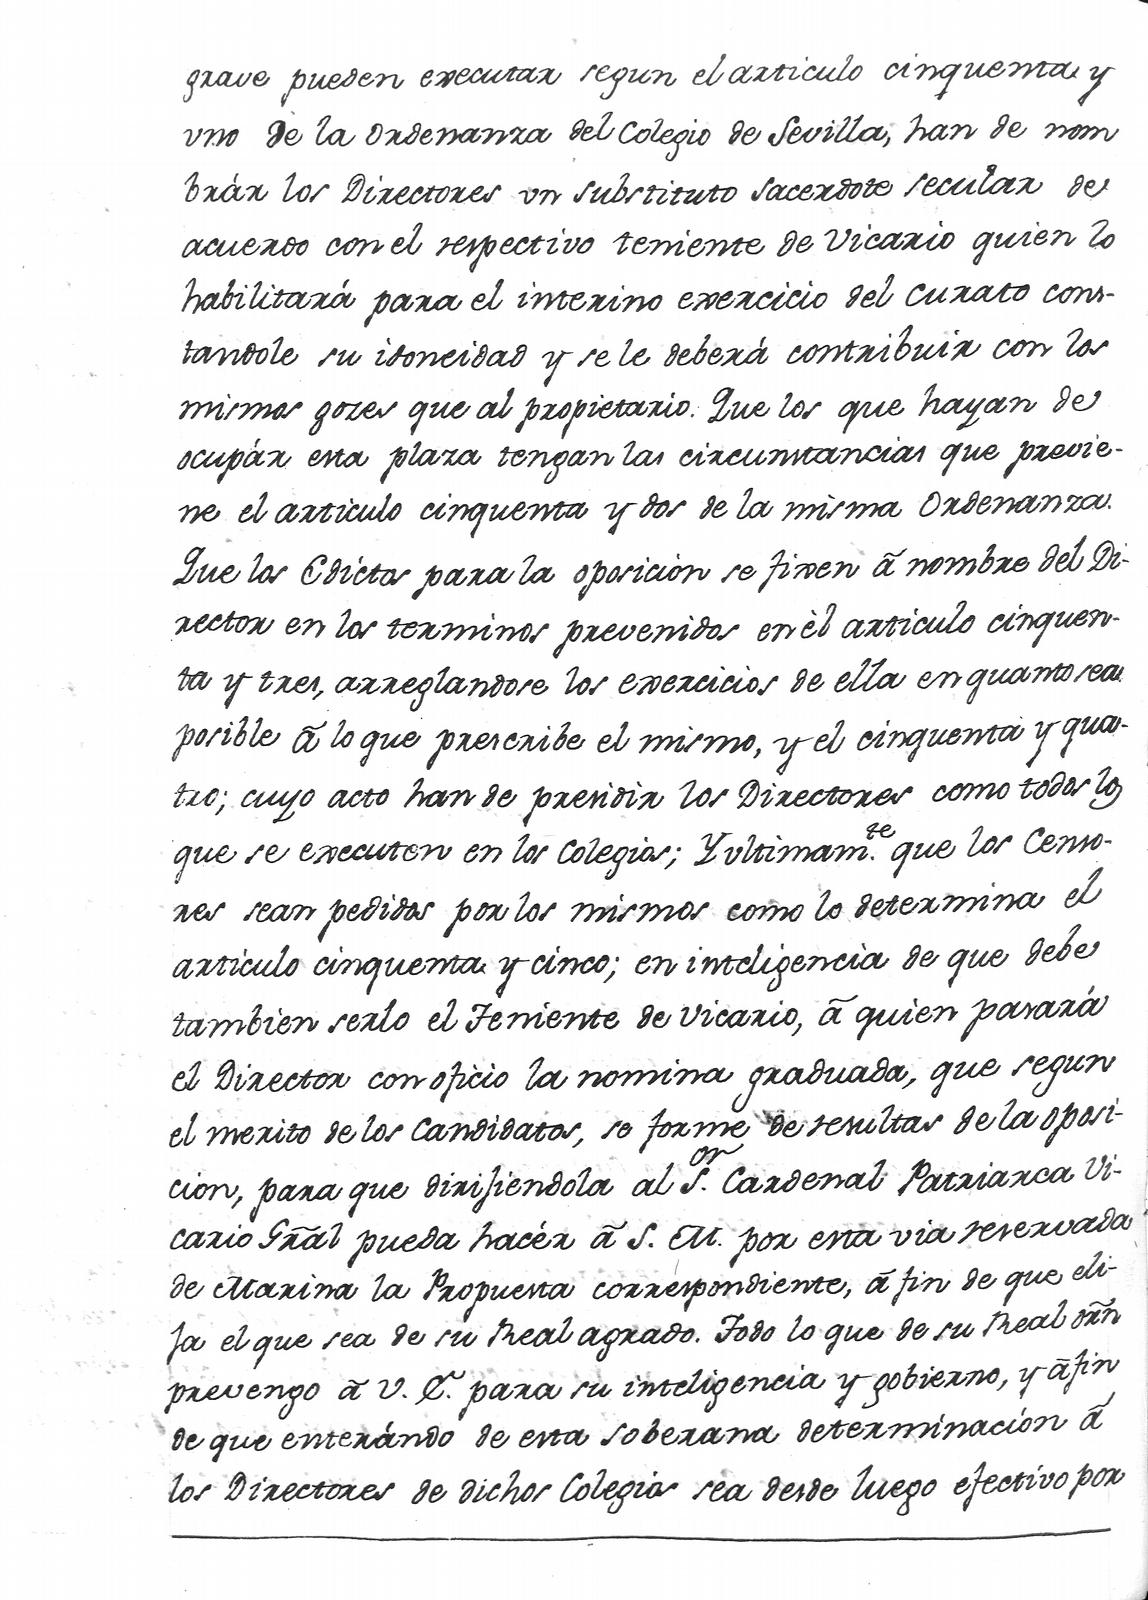 grave pueden executar segun el articulo cinquenta y
vno de la Ordenanza del Colegio de Sevilla, han de nom
brár los Directores vn substituto sacerdote secular de
acuerdo con el respectivo teniente de Vicario quien lo
habilitará para el interino exercicio del Curato cons-
tandole su idoneidad y se le deberá contribuir con los
mismos gozes que al propietario. Que los que hayan de
ocupár esta plaza tengan las circunstancias que previe-
ne el articulo cinquenta y dos de la misma Ordenanza.
Que los Edictos para la oposicion se fixen ã nombre del Di-
rector en los terminos prevenidos en èl articulo cinquen-
ta y tres, arreglandose los exercicios de ella en quanto sea
posible ã lo que prescribe el mismo, y el cinquenta y qua-
tro; cuyo acto han de presidir los Directores como todos los
que se executen en los Colegios; Y vltimam.te que los Censo-
res sean pedidos por los mismos como lo determina el
articulo cinquenta y cinco; en inteligencia de que debe
tambien serlo el Teniente de Vicario, ã quien pasará
el Director con oficio la nomina graduada, que segun
el merito de los Candidatos, se forme de resultas de la oposi-
cion, para que dirijiendola al S.or Cardenal Patriarca Vi-
cario Grãl pueda hacér ã S. M. por esta via reservada
de Marina la Propuesta correspondiente, ã fin de que eli-
ja el que sea de su Real agrado. Todo lo que de su Real orñ
prevengo ã V. E. para su inteligencia y gobierno, y ã fin
de que enterándo de esta soberana determinación ã
los Directores de dichos Colegios sea desde luego efectivo por